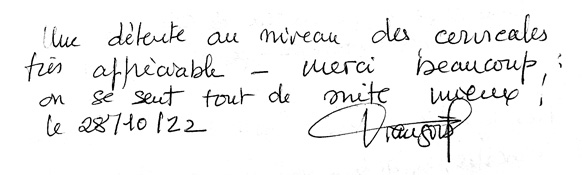 Une détente au niveau des cervicales
très appréciable - merci beaucoup,
on se sent tout de suite mieux !
le 28/10/22